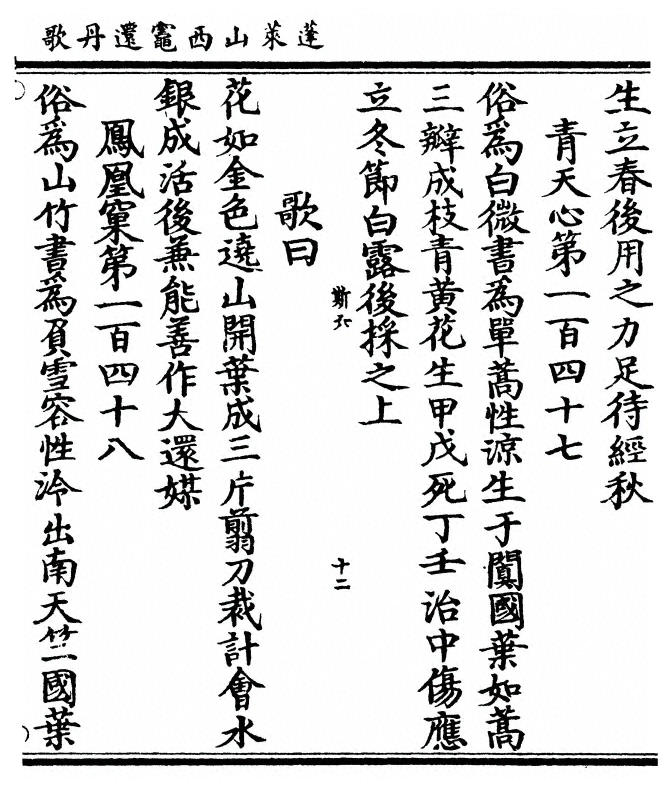 蓬萊山西竈還丹歌
生立春後用之力足待經秋
青天心第一百四十七
俗爲白微書爲單蒿性涼生于闐國葉如蒿
三瓣成枝青黃花生甲戊死丁壬治中傷應
立冬節白露後採之上
斯下
十二
歌曰
花如金色遶山開葉成三片翦刀裁計會水
銀成活後兼能善作大還媒
鳳凰窠第一百四十八
俗爲山竹書爲負雪容性冷出南天竺國葉